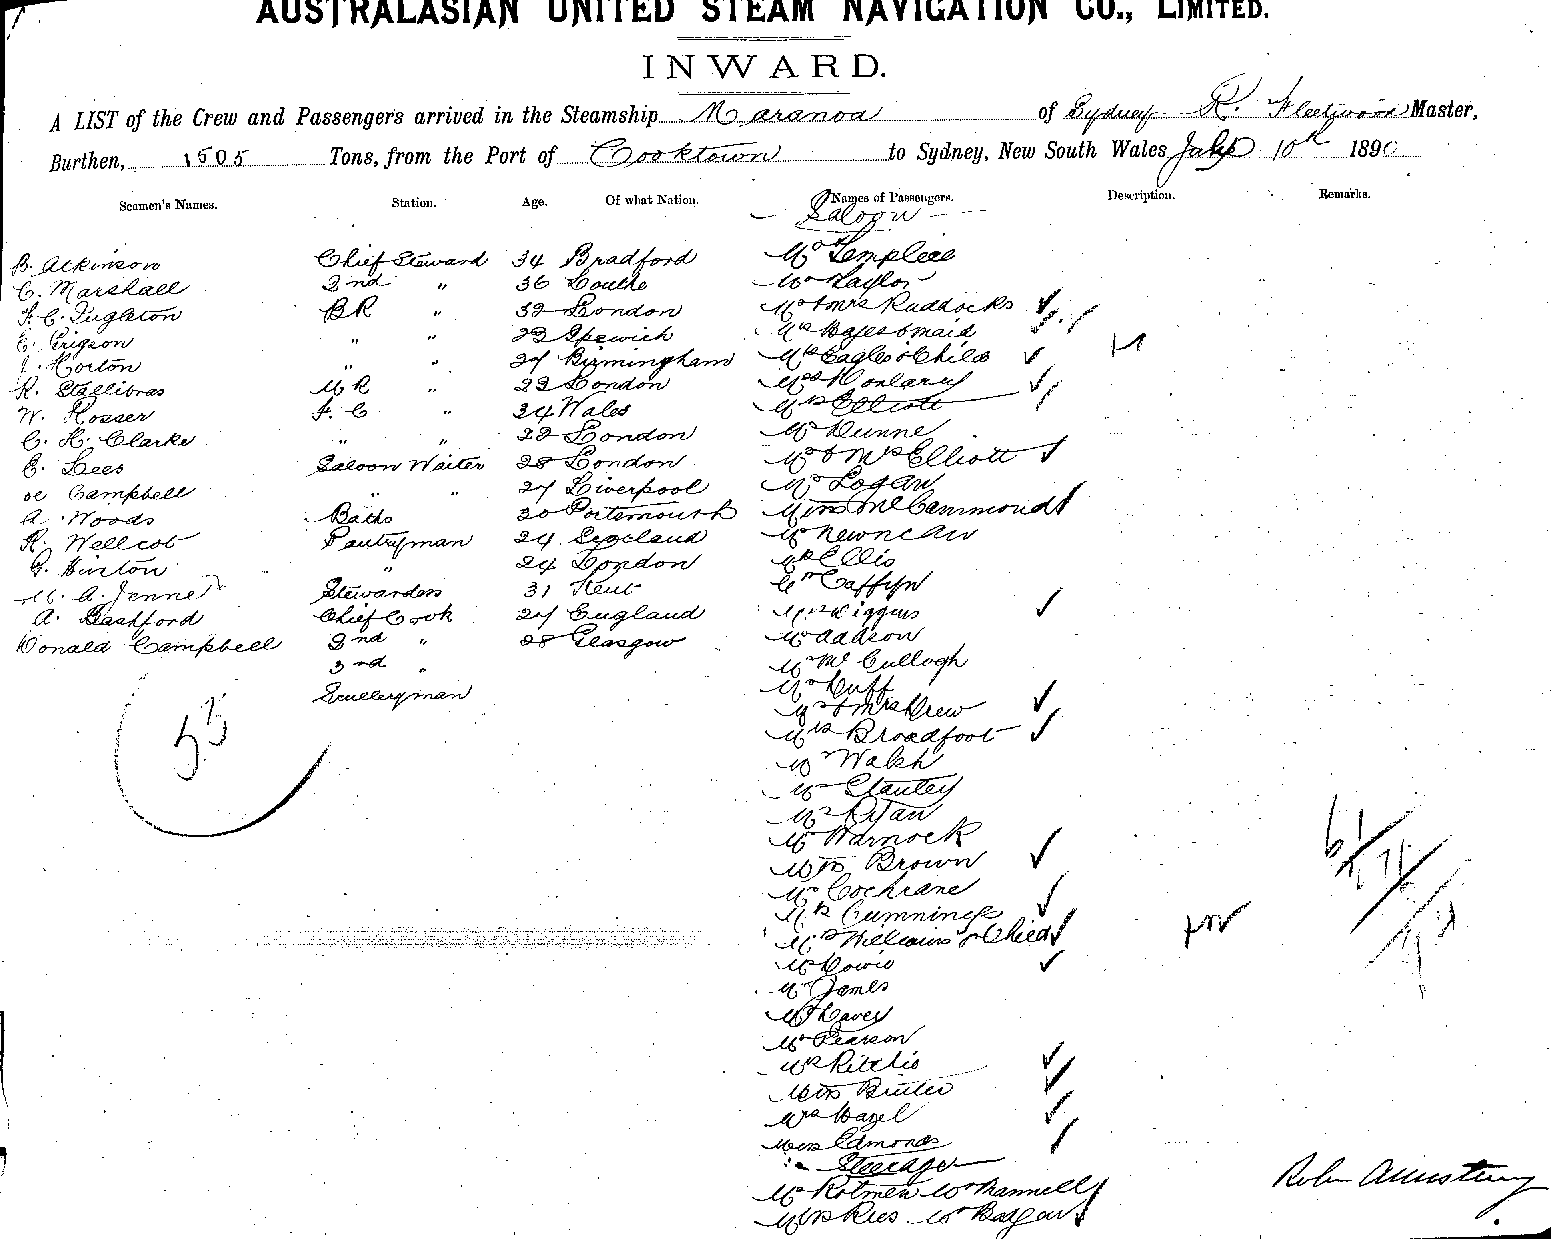 AUSTRALASIAN UNITED STEAM NAVIGATION CO., LIMITED.
INWARD.
A LIST of the Crew and Passengers arrived in the Steamship Maranoa of Sydney R. Fleetwood Master,
Burthen, 1505 Tons, from the Port of Cooktown to Sydney, New South Wales July 10th 1890
Seamen's Names. Station. Age. Of what Nation. Names of Passengers. Description. Remarks.
Saloon
B. Atkinson Chief Steward 34 Bradford Mr
C. Marshall 2nd " 36 Mr Taylor
BR " 32 London Mr & Mrs Ruddocks
" " 23 Ipswich Mrs Hayes & maid
Horton " " 27 Birmingham Mrs Eagles & Child
R. Stallibras MR " 22 London
W. Rosser F. C " 24 Wales Mrs Elliott
C. H. Clarke " " 22 London Mr Dunne
E. Lees Saloon Waiter 28 London Mr & Mrs Elliott
Campbell " " 27 Liverpool Mr Logan
A. Woods Baths 20 Portsmouth Miss McCammond
R. Wellcot Pantryman 24 England Mr Newnean
G. Hinton " 24 London Mr Ellis
M. A. Jenner Stewardess 31 Kent Caffyn
A. Bashford Chief Cook 27 England Wiggins
Donald Campbell 2nd " 28 Glasgow Mr Addson
3rd " Mr McCullogh
Sculleryman Mr Cuff
Mr & Mrs Drew
53 Mrs Broadfoot
Mr Walsh
Mr Stanley
Mr Ryan
Mr Warnock
Miss Brown
Mr Cochrane
Mrs Cummings
Mrs Williams & Child
Mr Cowie
Mr James
Mr Davey
Mr Pearson
Mrs Ritchie
Miss Butler
Mrs Hazel
Miss Edmonds
Steerage
Mr Rotmen Mr Mannell
Mrs Rees Mr Badgar